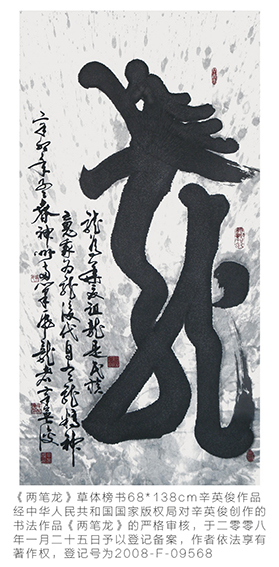 龍
龍華夏祖龍是民族
為龍後代自龍精神
辛卯年春神州筆龍辛英俊
《两笔龙》草体榜书68*138cm辛英俊作品
经中华人民共和国国家版权局对辛英俊创作的
书法作品《两笔龙》的严格审核，于二零零八
年一月二十五日予以登记备案，作者依法享有
著作权，登记号为2008-F-09568